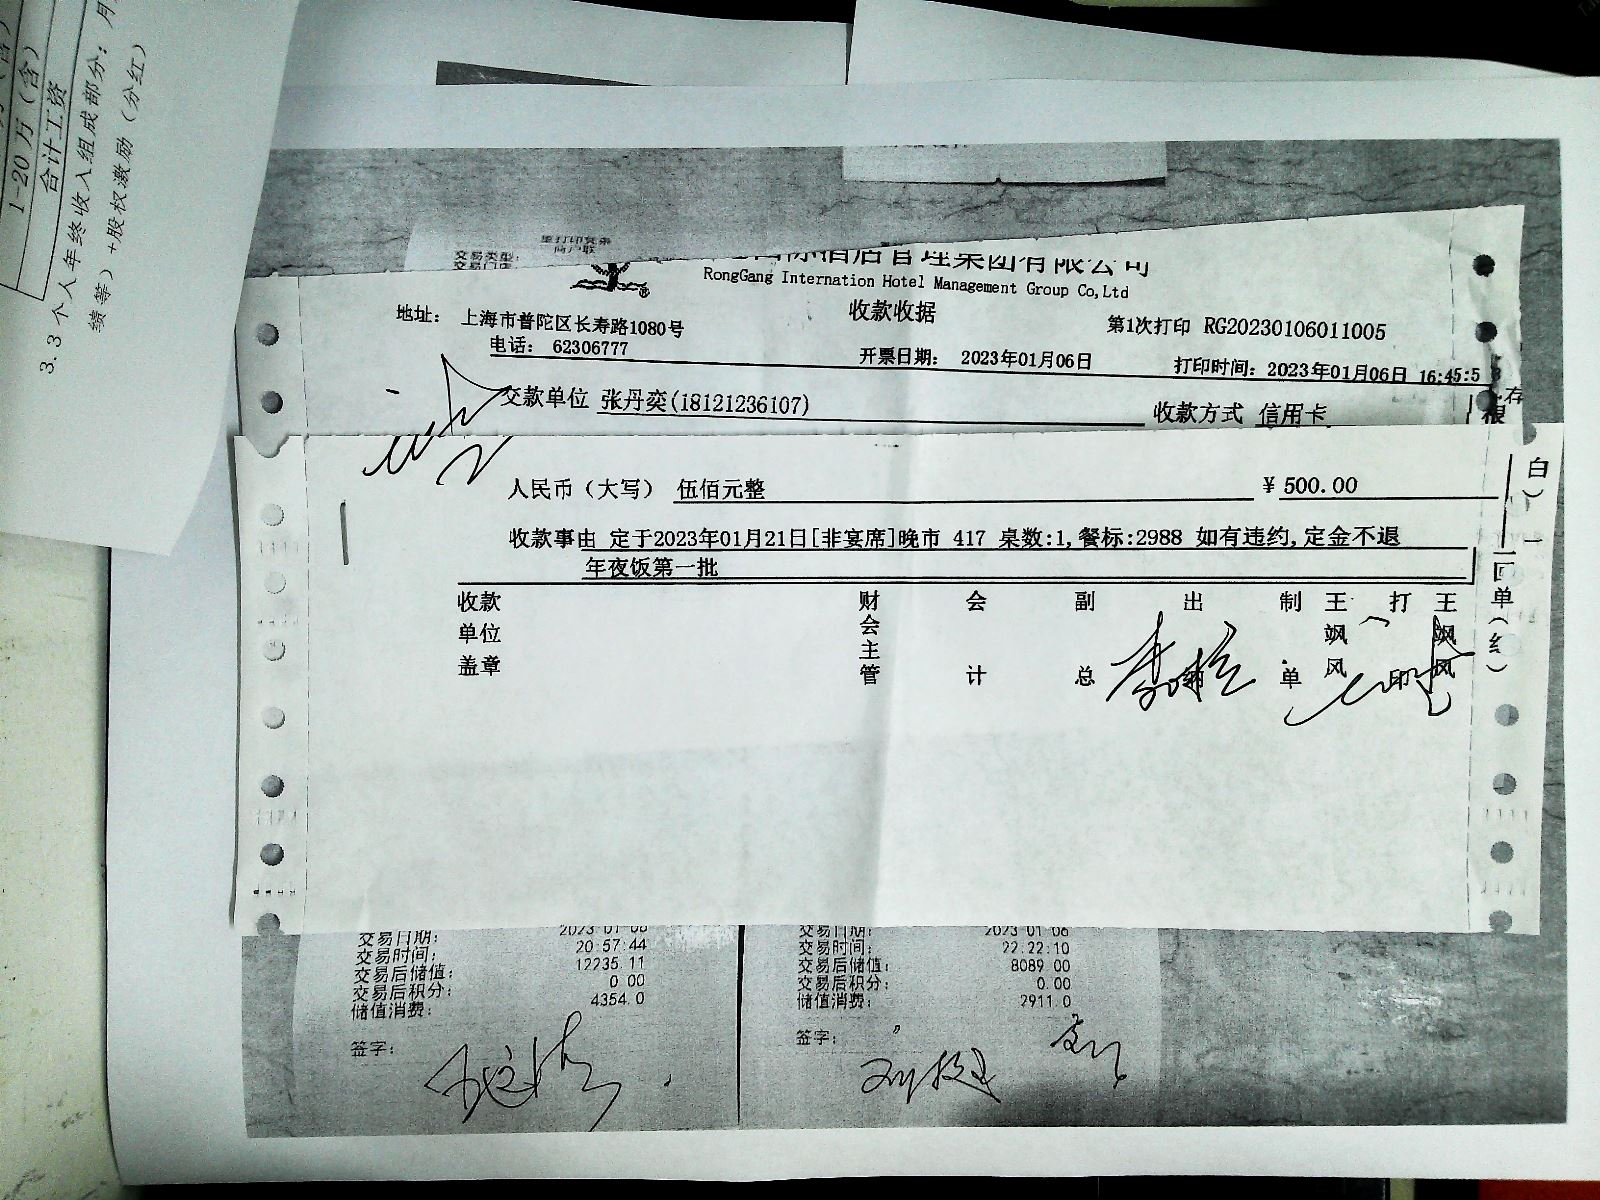 1-20万(含)
合计工资
3.3 个人年终收入组成部分：月
绩等）+股权激励（分红）
重打印凭条
商户联
交易类型:
交易门店:
酒店管理集团有限公司
RongGang Internation Hotel Management Group Co,Ltd
地址： 上海市普陀区长寿路1080号
收款收据
第1次打印 RG20230106011005
电话： 62306777
开票日期： 2023年01月06日
打印时间：2023年01月06日 16:45:5
交款单位 张丹奕(18121236107)
收款方式 信用卡
存根
白）
人民币（大写） 伍佰元整 ¥ 500.00
收款事由 定于2023年01月21日[非宴席]晚市 417 桌数:1,餐标:2988 如有违约,定金不退
年夜饭第一批
二回单（红）
收款单位盖章 财会主管 会计 副总 出纳 制单 王飒风 打印 王飒风
交易日期: 2023 01 06
交易时间: 20:57:44
交易后储值: 12235.11
交易后积分: 0.00
储值消费: 4354.0
签字:
交易日期: 2023 01 06
交易时间: 22:22:10
交易后储值: 8089.00
交易后积分: 0.00
储值消费: 2911.0
签字: